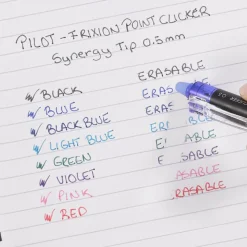 PILOT - FRIXION POINT CLICKER
Synergy Tip 0.5mm
BLACK ERASABLE
BLUE ERAS
BLACK BLUE ERAS
LIGHT BLUE ER
GREEN ABLE
VIOLET SABLE
PINK ASABLE
RED RASABLE